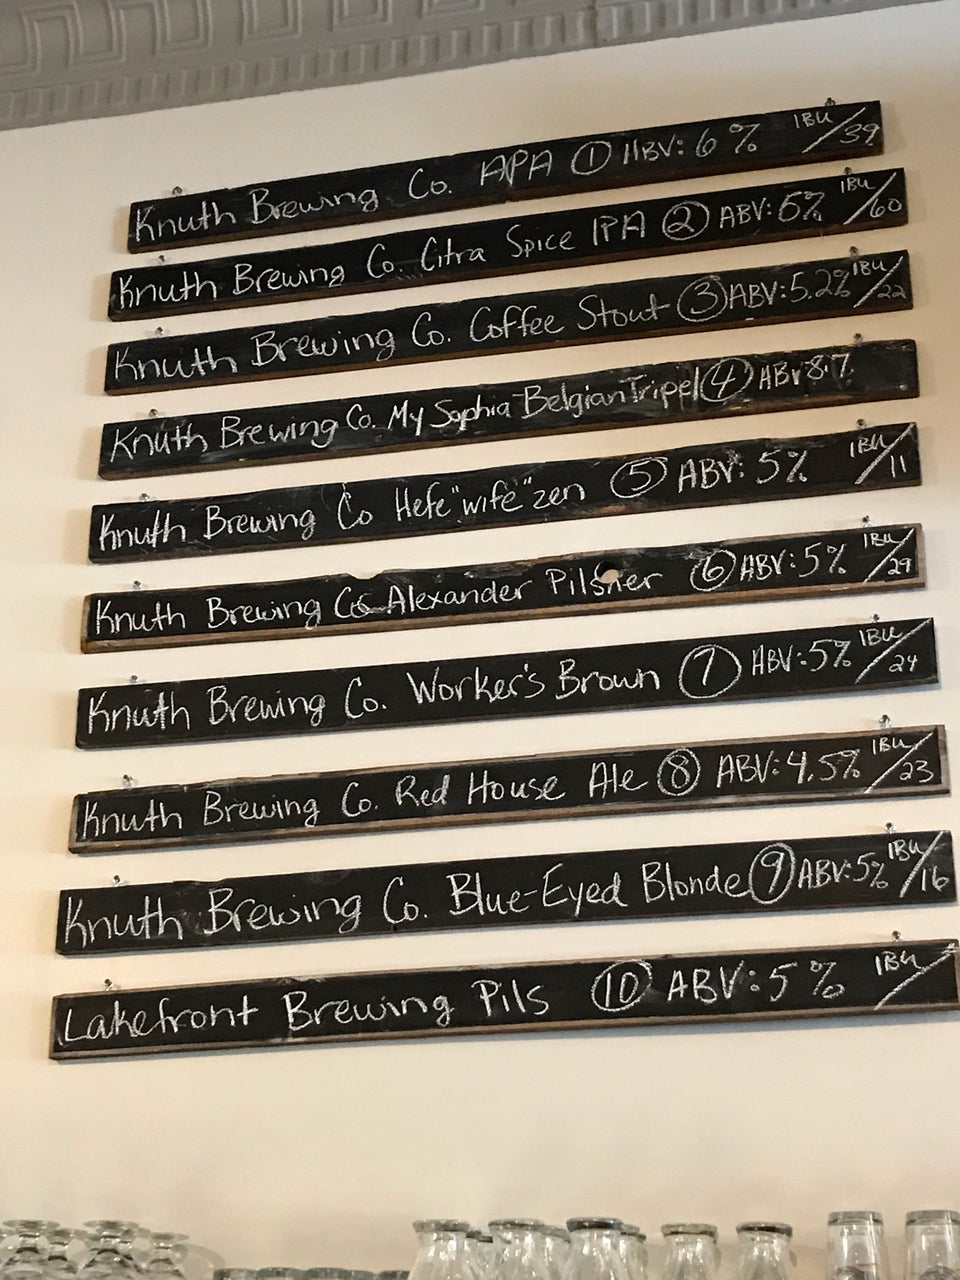 Knuth Brewing Co. APA ① ABV: 6% IBU/39
Knuth Brewing Co. Citra Spice IPA ② ABV: 6% IBU/60
Knuth Brewing Co. Coffee Stout ③ ABV: 5.2% IBU/22
Knuth Brewing Co. My Sophia Belgian Tripel ④ ABV 8.7
Knuth Brewing Co Hefe"wife"zen ⑤ ABV: 5% IBU/11
Knuth Brewing Co. Alexander Pilsner ⑥ ABV: 5% IBU/29
Knuth Brewing Co. Worker's Brown ⑦ ABV: 5% IBU/24
Knuth Brewing Co. Red House Ale ⑧ ABV: 4.5% IBU/23
Knuth Brewing Co. Blue-Eyed Blonde ⑨ ABV: 5% IBU/16
Lakefront Brewing Pils ⑩ ABV: 5% IBU/